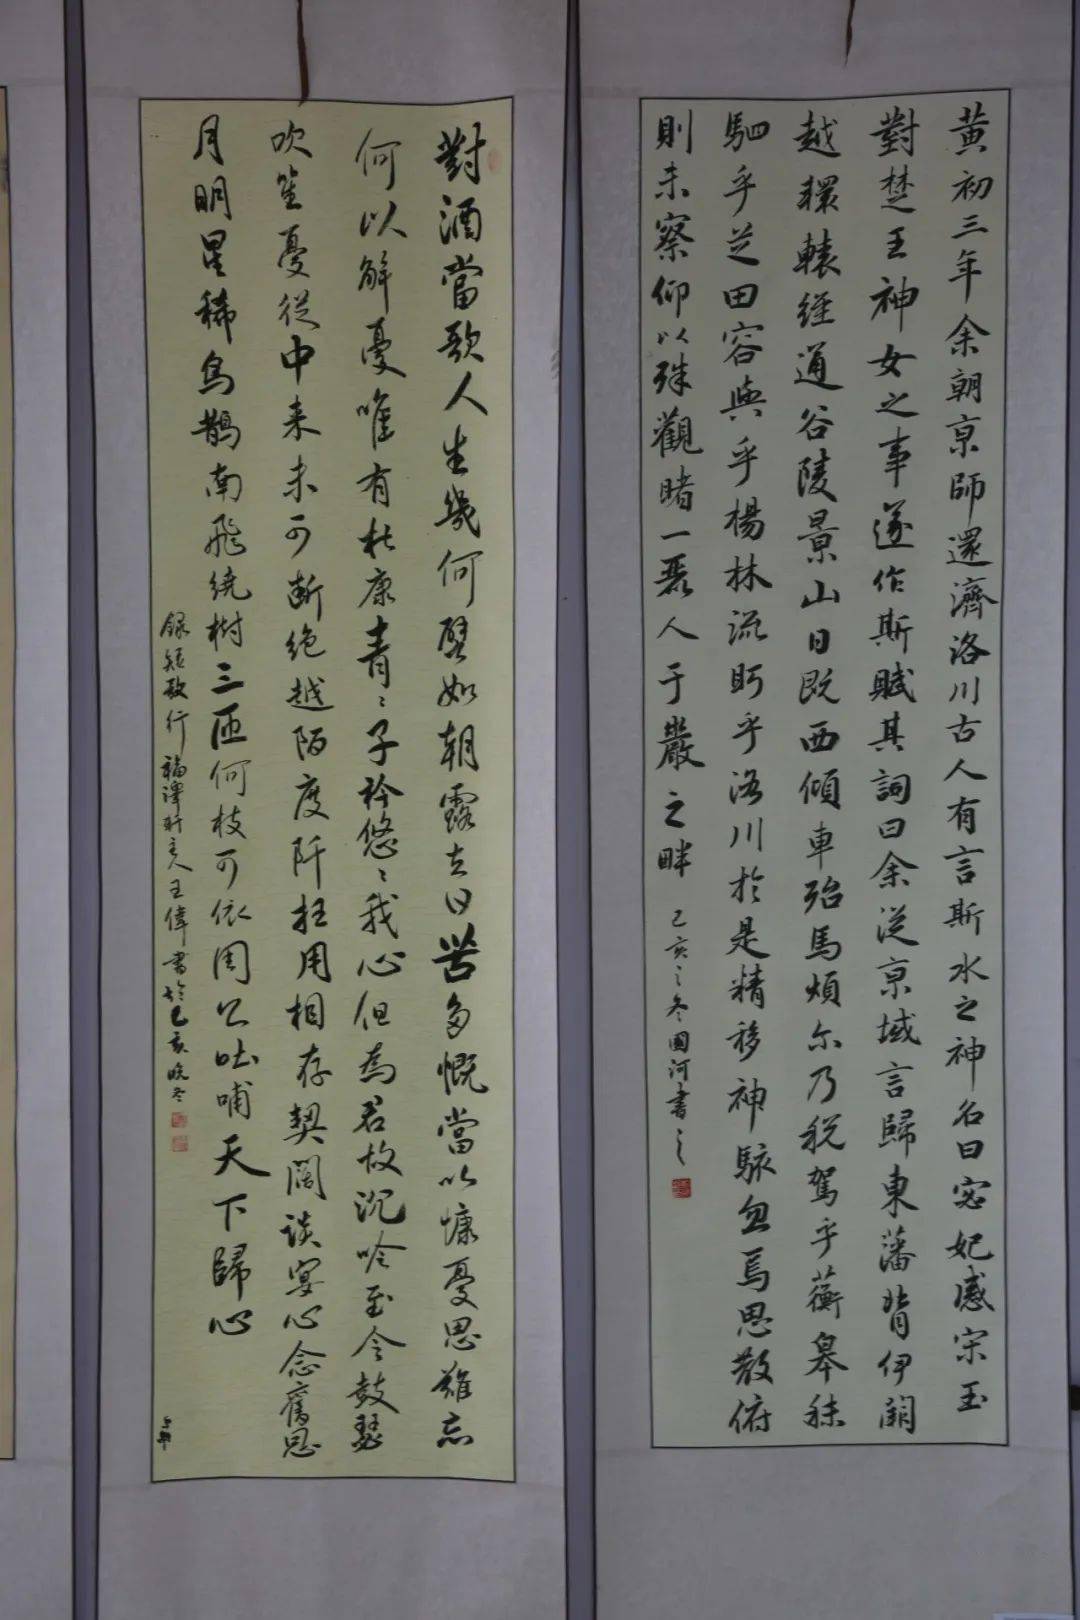 黄初三年余朝京師還濟洛川古人有言斯水之神名曰宓妃感宋玉
對楚王神女之事遂作斯賦其詞曰余從京域言歸東藩背伊闕
越轘轅經通谷陵景山日既西傾車殆馬煩尓乃税駕乎蘅皋秣
駟乎芝田容與乎楊林流眄乎洛川於是精移神駭忽焉思散俯
則未察仰以殊觀睹一麗人于巖之畔 己亥之冬國河書之
對酒當歌人生幾何譬如朝露去日苦多慨當以慷憂思難忘
何以解憂唯有杜康青〻子衿悠〻我心但為君故沉吟至今鼓瑟
吹笙憂從中来未可断絶越陌度阡枉用相存契闊談宴心念舊恩
月明星稀烏鵲南飛繞樹三匝何枝可依周公吐哺天下歸心
録短歌行 福澤軒主人王偉書於己亥晚冬